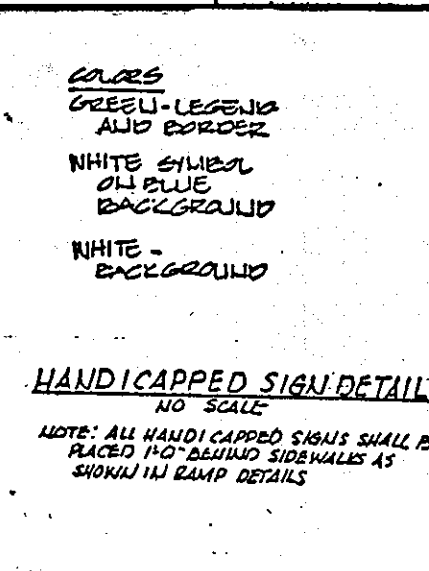 COLORS
GREEN-LEGEND
AND BORDER
WHITE SYMBOL
ON BLUE
BACKGROUND
WHITE -
BACKGROUND
HANDICAPPED SIGN DETAIL
NO SCALE
NOTE: ALL HANDICAPPED SIGNS SHALL B
PLACED 1'-0" BEHIND SIDEWALKS AS
SHOWN IN RAMP DETAILS